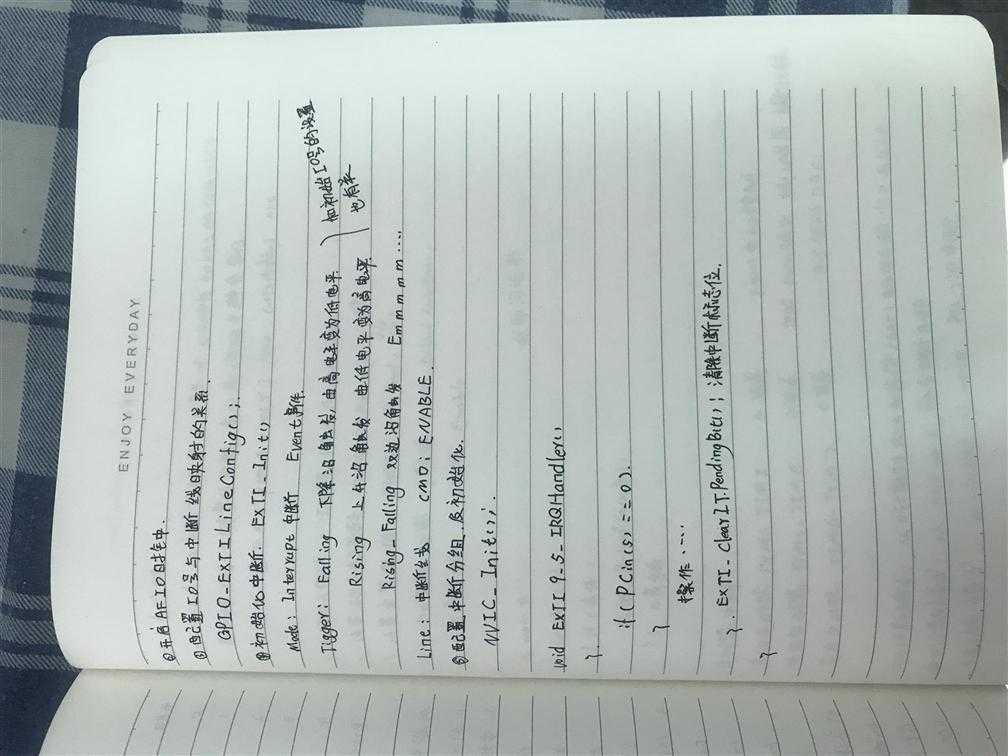 ENJOY EVERYDAY
②开启AFIO时钟.
③配置IO号与中断线映射的关系.
GPIO_EXTILineConfig();
④初始化中断. EXTI_Init()
Mode: Interrupt 中断 Event 事件.
Tigger: Falling 下降沿触发, 由高电平变为低电平.
Rising 上升沿触发 由低电平变为高电平.
和初始IO号的设置
也有关
Rising_Falling 双边沿触发 Emmmm....
Line: 中断线 CMD: ENABLE.
⑤配置中断分组.及初始化.
NVIC_Init();
void EXTI9_5_IRQHandler()
{
if (PCin(5)==0).
{
操作....
EXTI_ClearIT.PendingBit(); 清除中断标志位.
}.
}